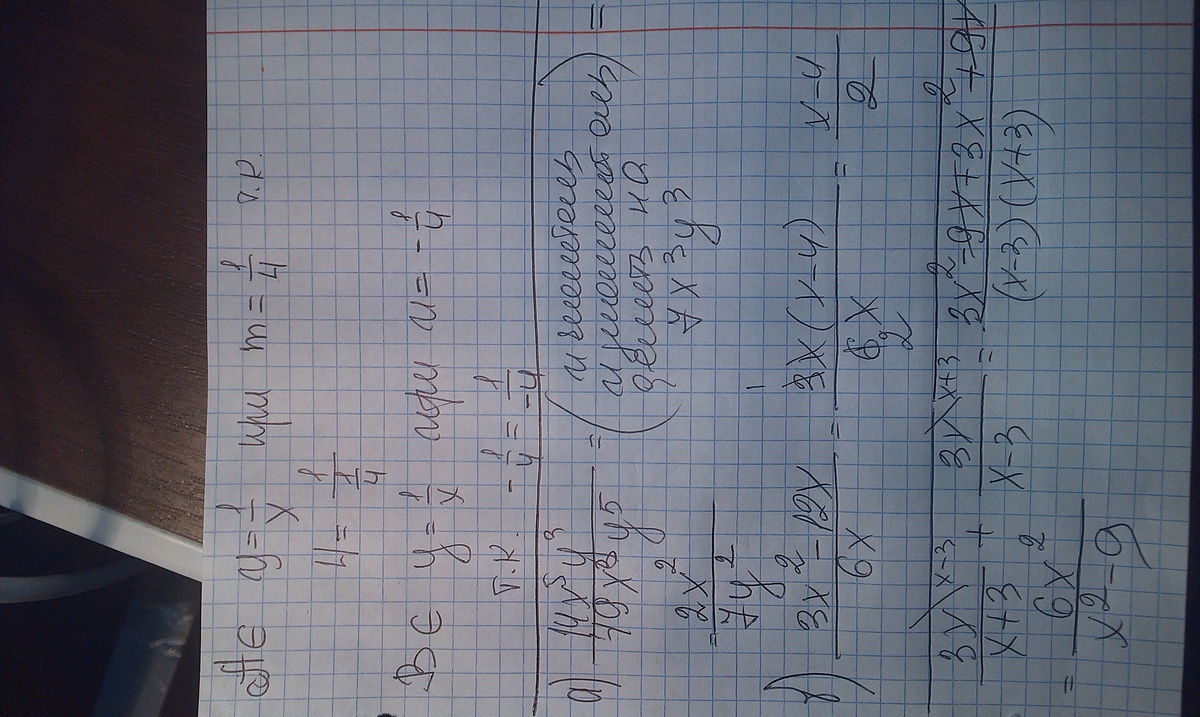 A ∈ y = 1/x при m = 1/4 т.к.
4 = 1/(1/4)
B ∈ y = 1/x при n = -1/4
т.к. -1/4 = -1/4
а) 14x⁵y³/49x³y⁵ = (и числитель и знаменатель делить на 7x³y³) =
= 2x²/7y²
(3x² - 12x)/6x = 3x(x-4)/6x = (x-4)/2
1
2
3x\x-3/(x+3) + 3x\x+3/(x-3) = (3x² - 9x + 3x² + 9x)/((x-3)(x+3))
= 6x²/(x² - 9)